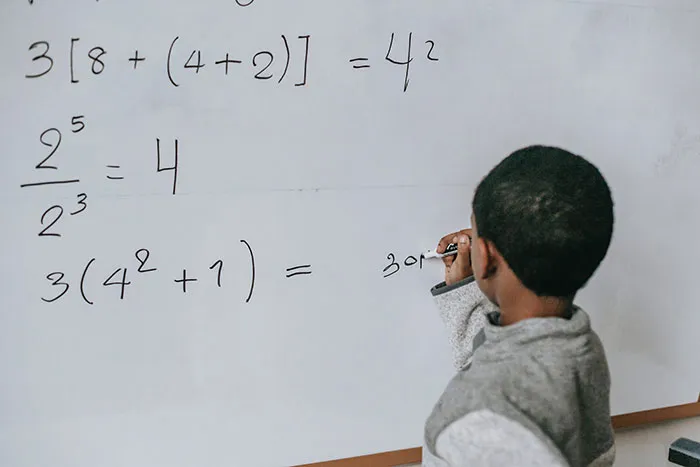 3[8 + (4+2)] = 4²
2⁵/2³ = 4
3(4² + 1) =